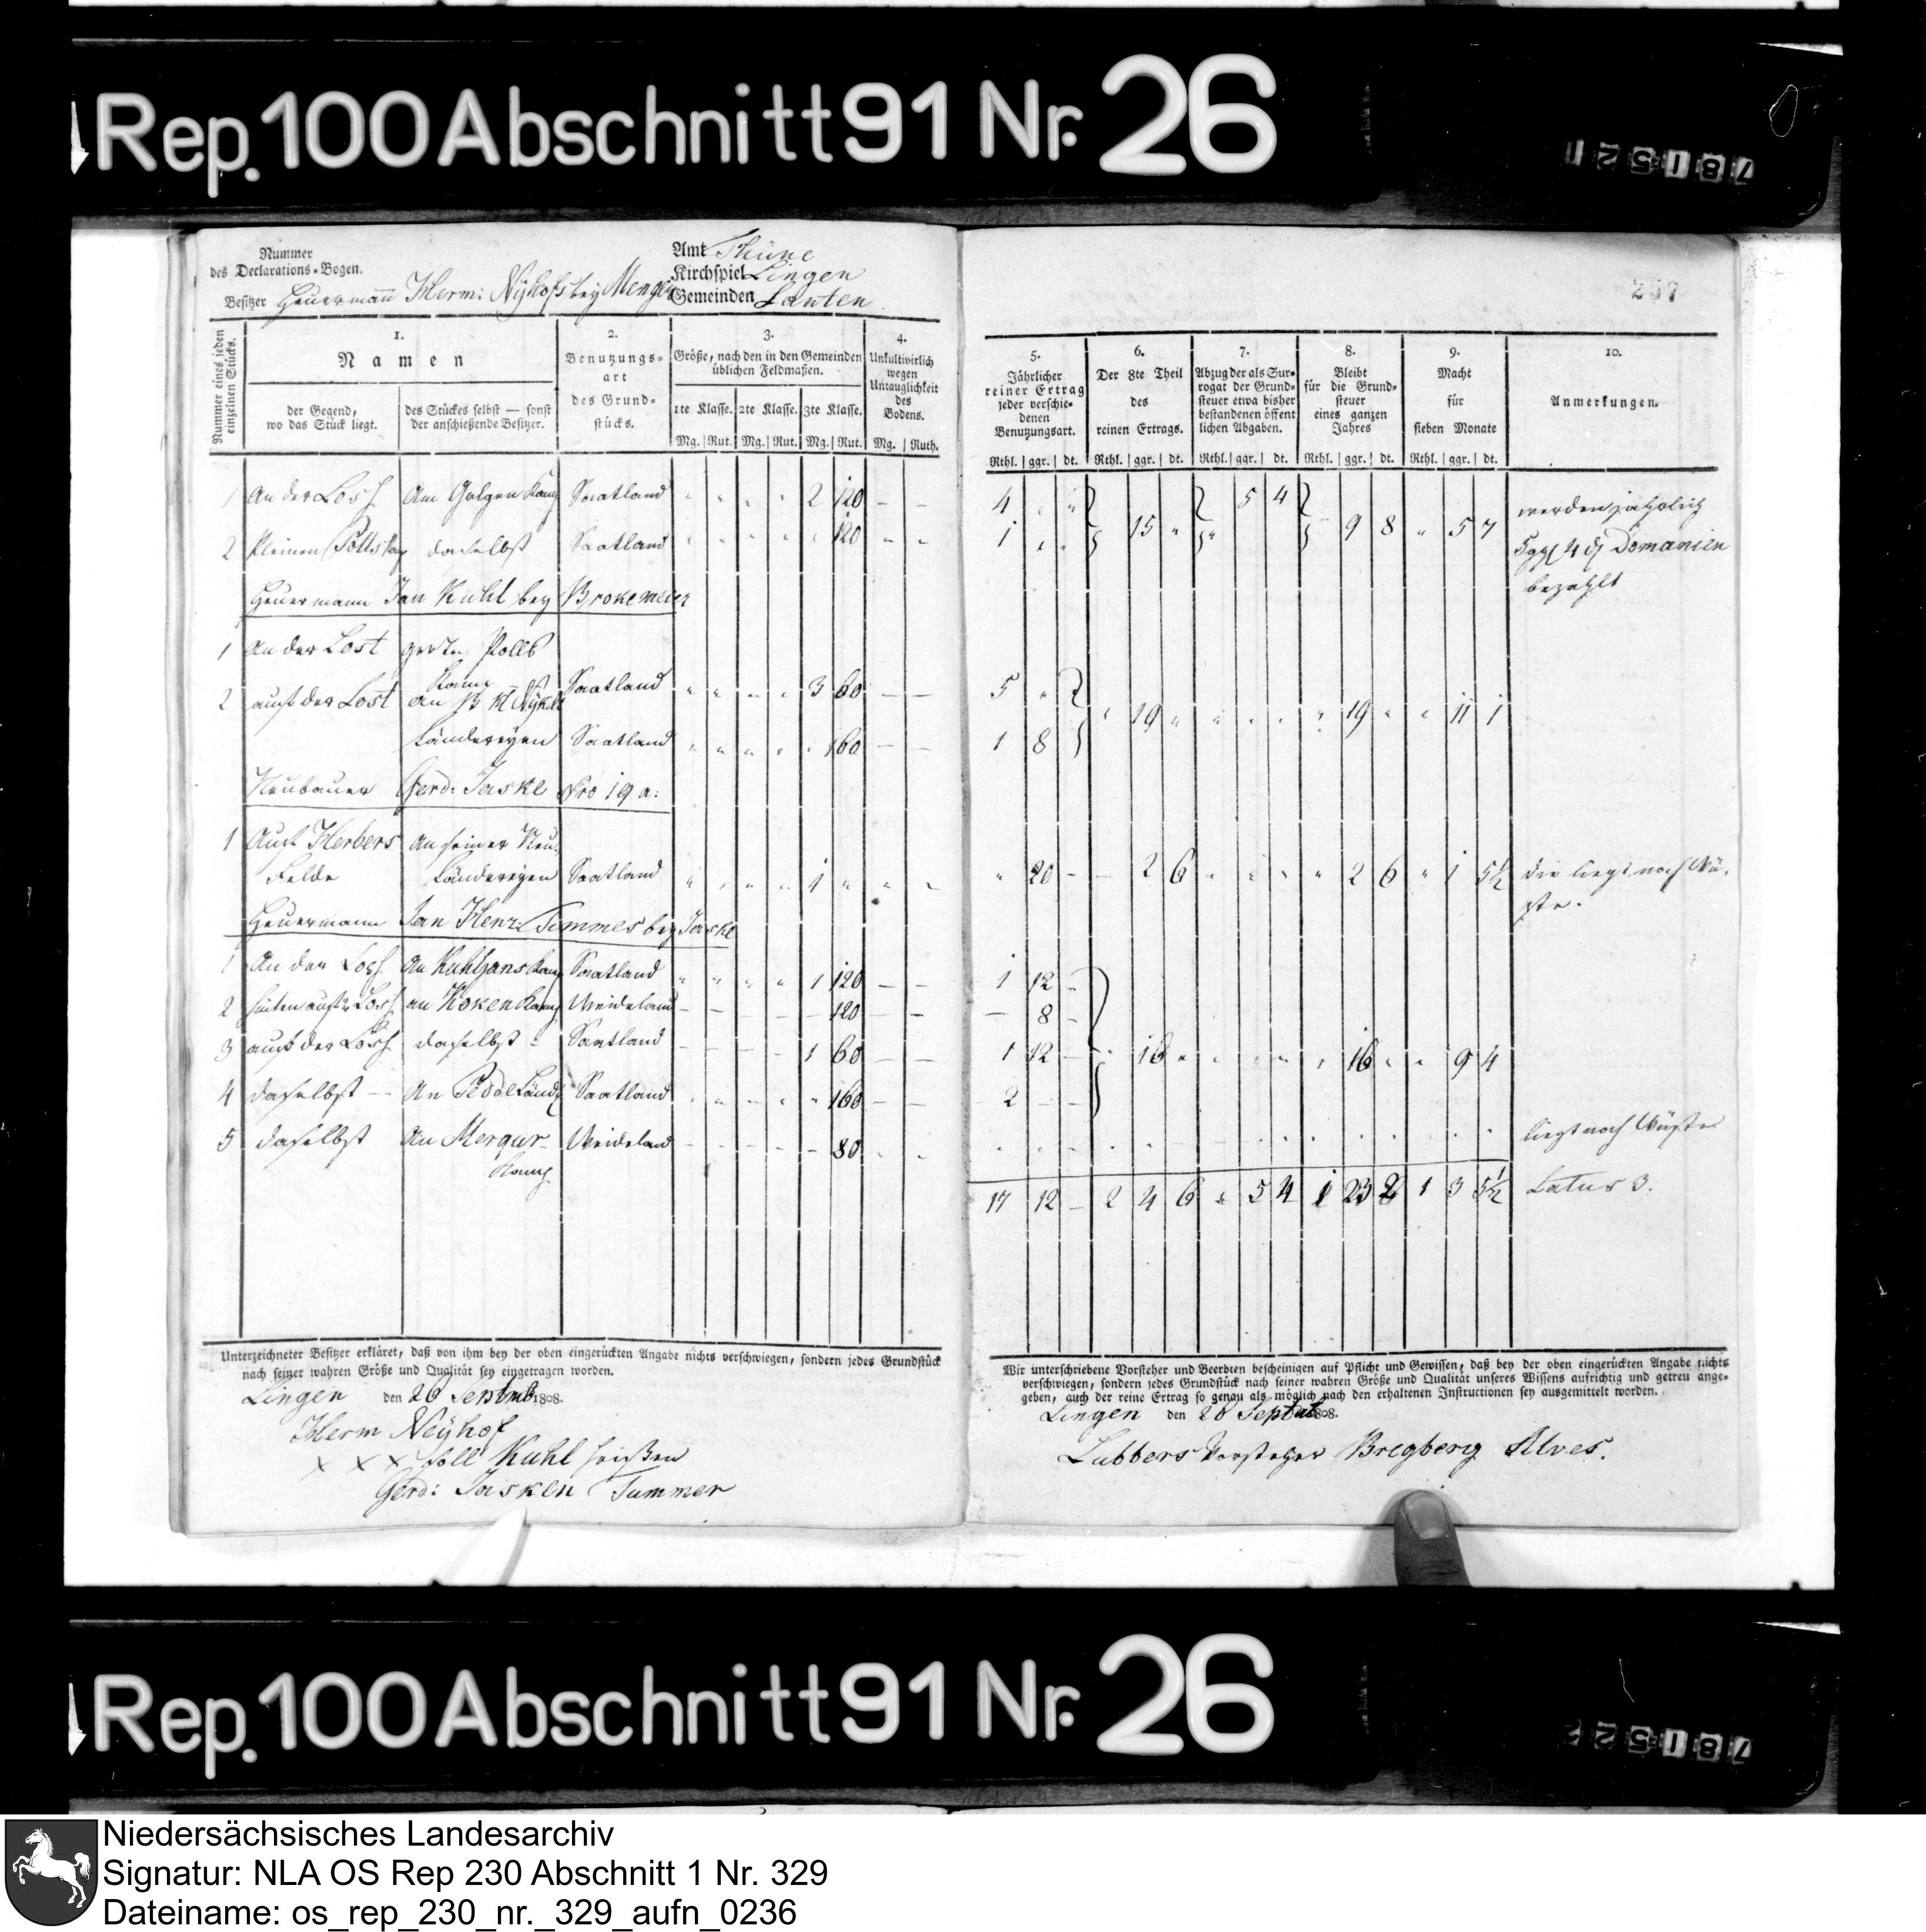 Rep. 100 Abschnitt 91 Nr. 26
Nummer
des Declarations-Bogen.
Amt Thüne
Kirchspiel Lingen
Besitzer Heuermann Herm: Nyhofs bey Menger
Gemeinden Laxten
257
Nummer eines jeden einzelnen Stücks.
1.
Namen
der Gegend, wo das Stück liegt.
des Stückes selbst — sonst der anschießende Besitzer.
2.
Benutzungs-
art
des Grund-
stücks.
3.
Größe, nach den in den Gemeinden
üblichen Feldmaßen.
1te Klasse. 2te Klasse. 3te Klasse.
Mg. Rut. Mg. Rut. Mg. Rut.
4.
Unkultivirlich
wegen
Untauglichkeit
des
Bodens.
Mg. Ruth.
5.
Jährlicher
reiner Ertrag
jeder verschie-
denen
Benutzungsart.
Rthl. ggr. dt.
6.
Der 8te Theil
des
reinen Ertrags.
Rthl. ggr. dt.
7.
Abzug der als Sur-
rogat der Grund-
steuer etwa bisher
bestandenen öffent
lichen Abgaben.
Rthl. ggr. dt.
8.
Bleibt
für die Grund-
steuer
eines ganzen
Jahres
Rthl. ggr. dt.
9.
Macht
für
sieben Monate
Rthl. ggr. dt.
10.
Anmerkungen.
1 An der Loss Am Galgen Kamp Saatland 2 120 4 5 4 werden jährlich
2 kleinen Potts Kamp daselbst Saatland 120 1 15 9 8 5 7 5 ggl 4 d Domanien
bezahlt
Heuermann Jan Kuhl bey Brokemeier
1 An der Lost Polls
Kamp Saatland 3 60 5
2 auf der Lost an
Ländereyen Saatland 160 1 8 19 19 11 1
Neubauer Gerd: Jaske Nro 19 a:
1 Auf Herbers an seiner Neu-
Felde Ländereyen Saatland 1 20 2 6 2 6 1 5½ die liegt noch Wü-
ste.
Heuermann Jan Henr: Temmes bey Jaske
1 An der Loss An Kuhljans Kamp Saatland 1 120 1 12
2 hinten auf Loss an Koken Kamp Weideland 120 8
3 auf der Loss daselbst Saatland 1 60 1 12 16 16 9 4
4 daselbst An Saatland 160 2
5 daselbst An Mergur- Weideland 80 liegt noch Wüste
Kamp
17 12 2 4 6 5 4 1 23 2 1 3 5½ Latus 3.
Unterzeichneter Besitzer erkläret, daß von ihm bey der oben eingerückten Angabe nichts verschwiegen, sondern jedes Grundstück
nach seiner wahren Größe und Qualität sey eingetragen worden.
Lingen den 26 Septmb 1808.
Herm Neyhof
x x x soll Kuhl heißen
Gerd: Jasken Tummer
Wir unterschriebene Vorsteher und Beerbten bescheinigen auf Pflicht und Gewissen, daß bey der oben eingerückten Angabe nichts
verschwiegen, sondern jedes Grundstück nach seiner wahren Größe und Qualität unseres Wissens aufrichtig und getreu ange-
geben, auch der reine Ertrag so genau als möglich nach den erhaltenen Instructionen sey ausgemittelt worden.
Lingen den 26 Septmb 1808.
Lubbers Vorsteher Bregberg Alves.
Rep. 100 Abschnitt 91 Nr. 26
Niedersächsisches Landesarchiv
Signatur: NLA OS Rep 230 Abschnitt 1 Nr. 329
Dateiname: os_rep_230_nr._329_aufn_0236